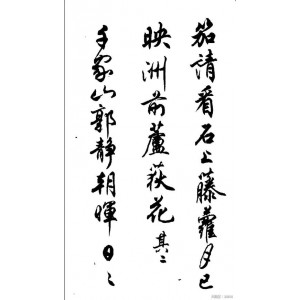 笳請看石上藤蘿月已
映洲前蘆荻花其二
千家山郭靜朝暉日〻